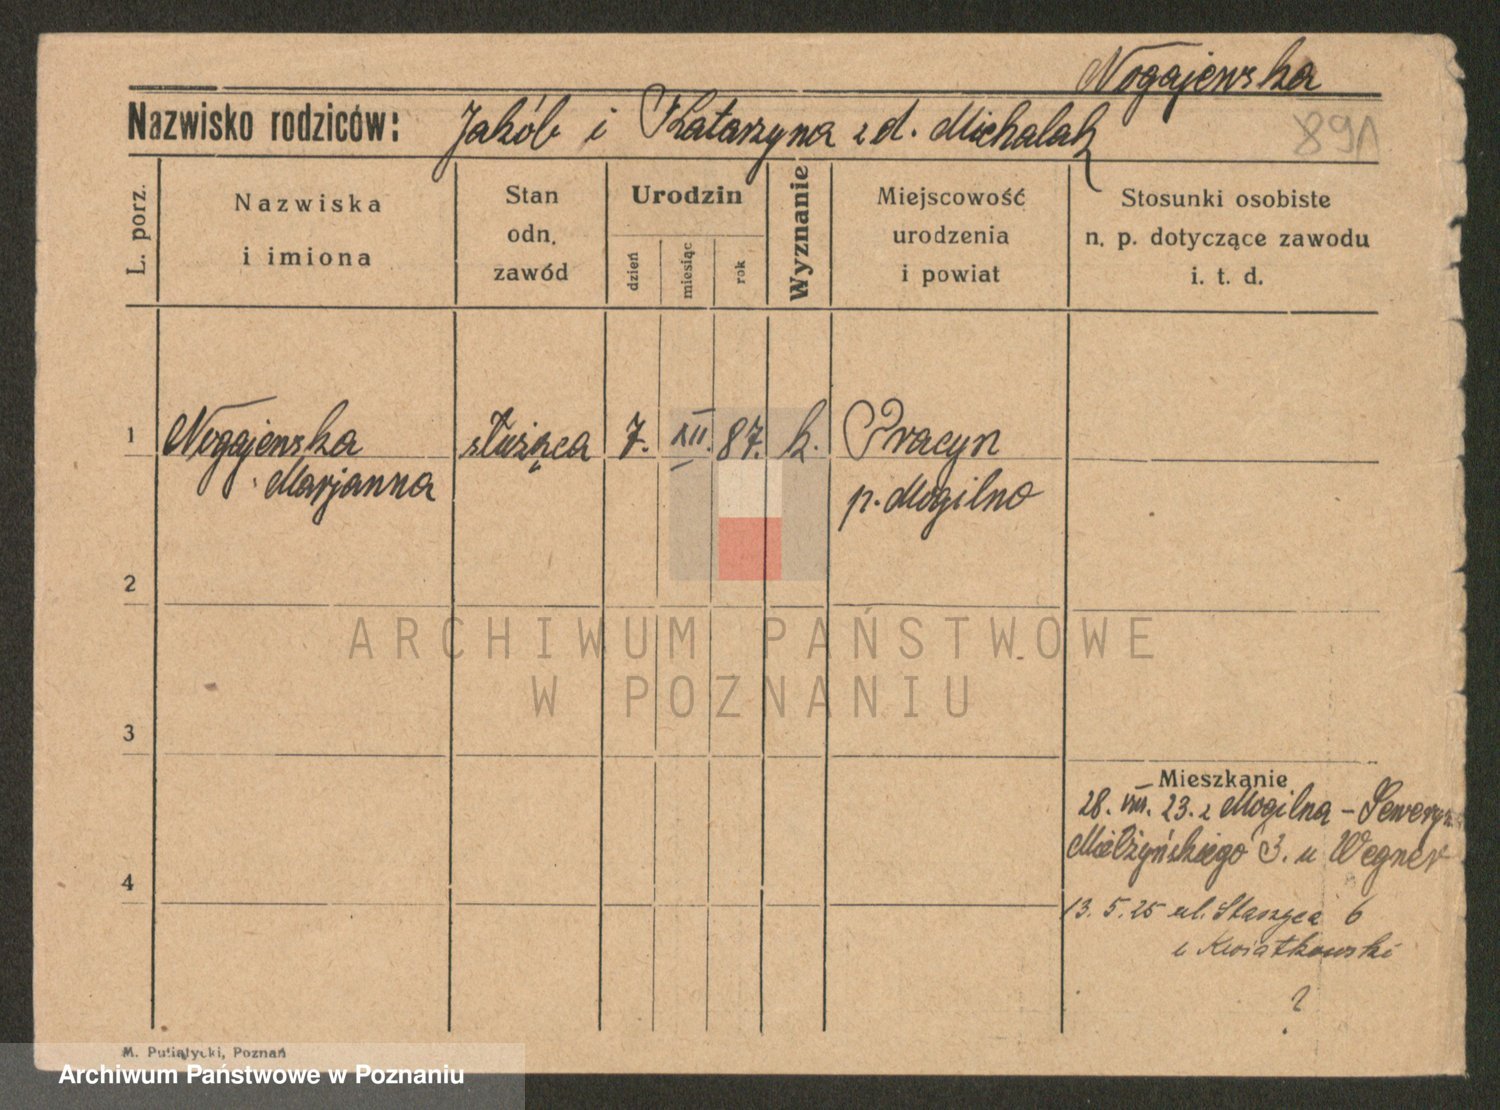 Nogajewska
Nazwisko rodziców: Jakób i Katarzyna z d. Michalak
891
L. porz.
Nazwiska
i imiona
Stan
odn.
zawód
Urodzin
dzień
miesiąc
rok
Wyznanie
Miejscowość
urodzenia
i powiat
Stosunki osobiste
n. p. dotyczące zawodu
i. t. d.
1 Nogajewska służąca 7. XII. 87. k. Pracyn
Marjanna p. Mogilno
2
ARCHIWUM PAŃSTWOWE
W POZNANIU
3
Mieszkanie
28. VIII. 23. z Mogilna - Seweryna
Mielżyńskiego 3. u Wegner
4
13. 5. 25 ul. Staszyca 6
u Kwiatkowski
?
M. Putiatycki, Poznań
Archiwum Państwowe w Poznaniu